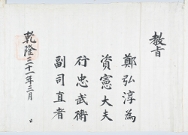 教旨
鄭弘淳為
資憲大夫
行忠武衛
副司直者
乾隆三十一年三月